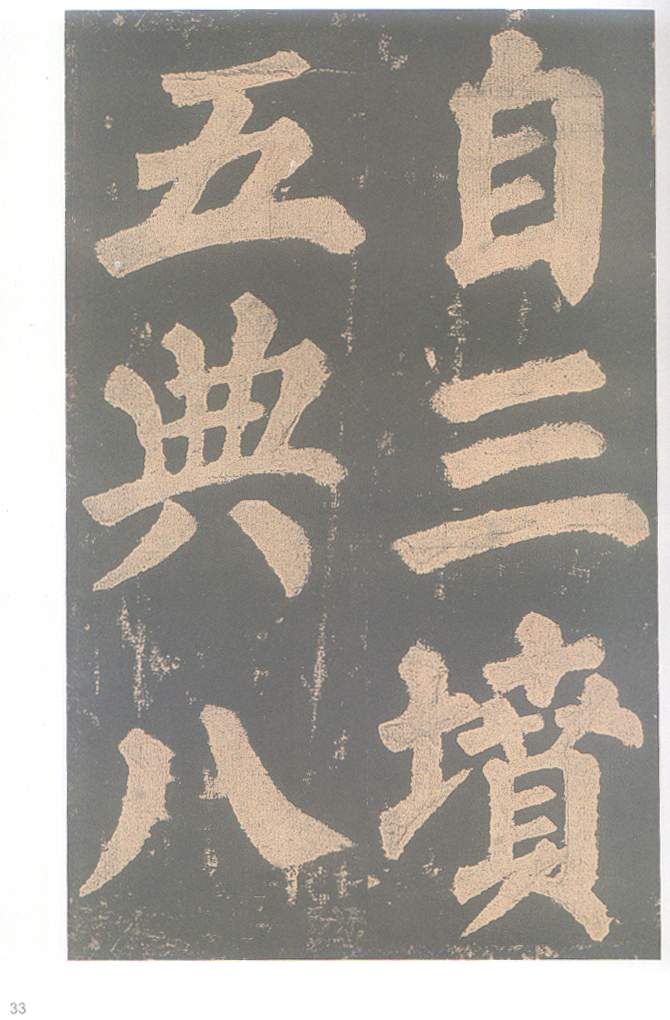 自三墳
五典八
33